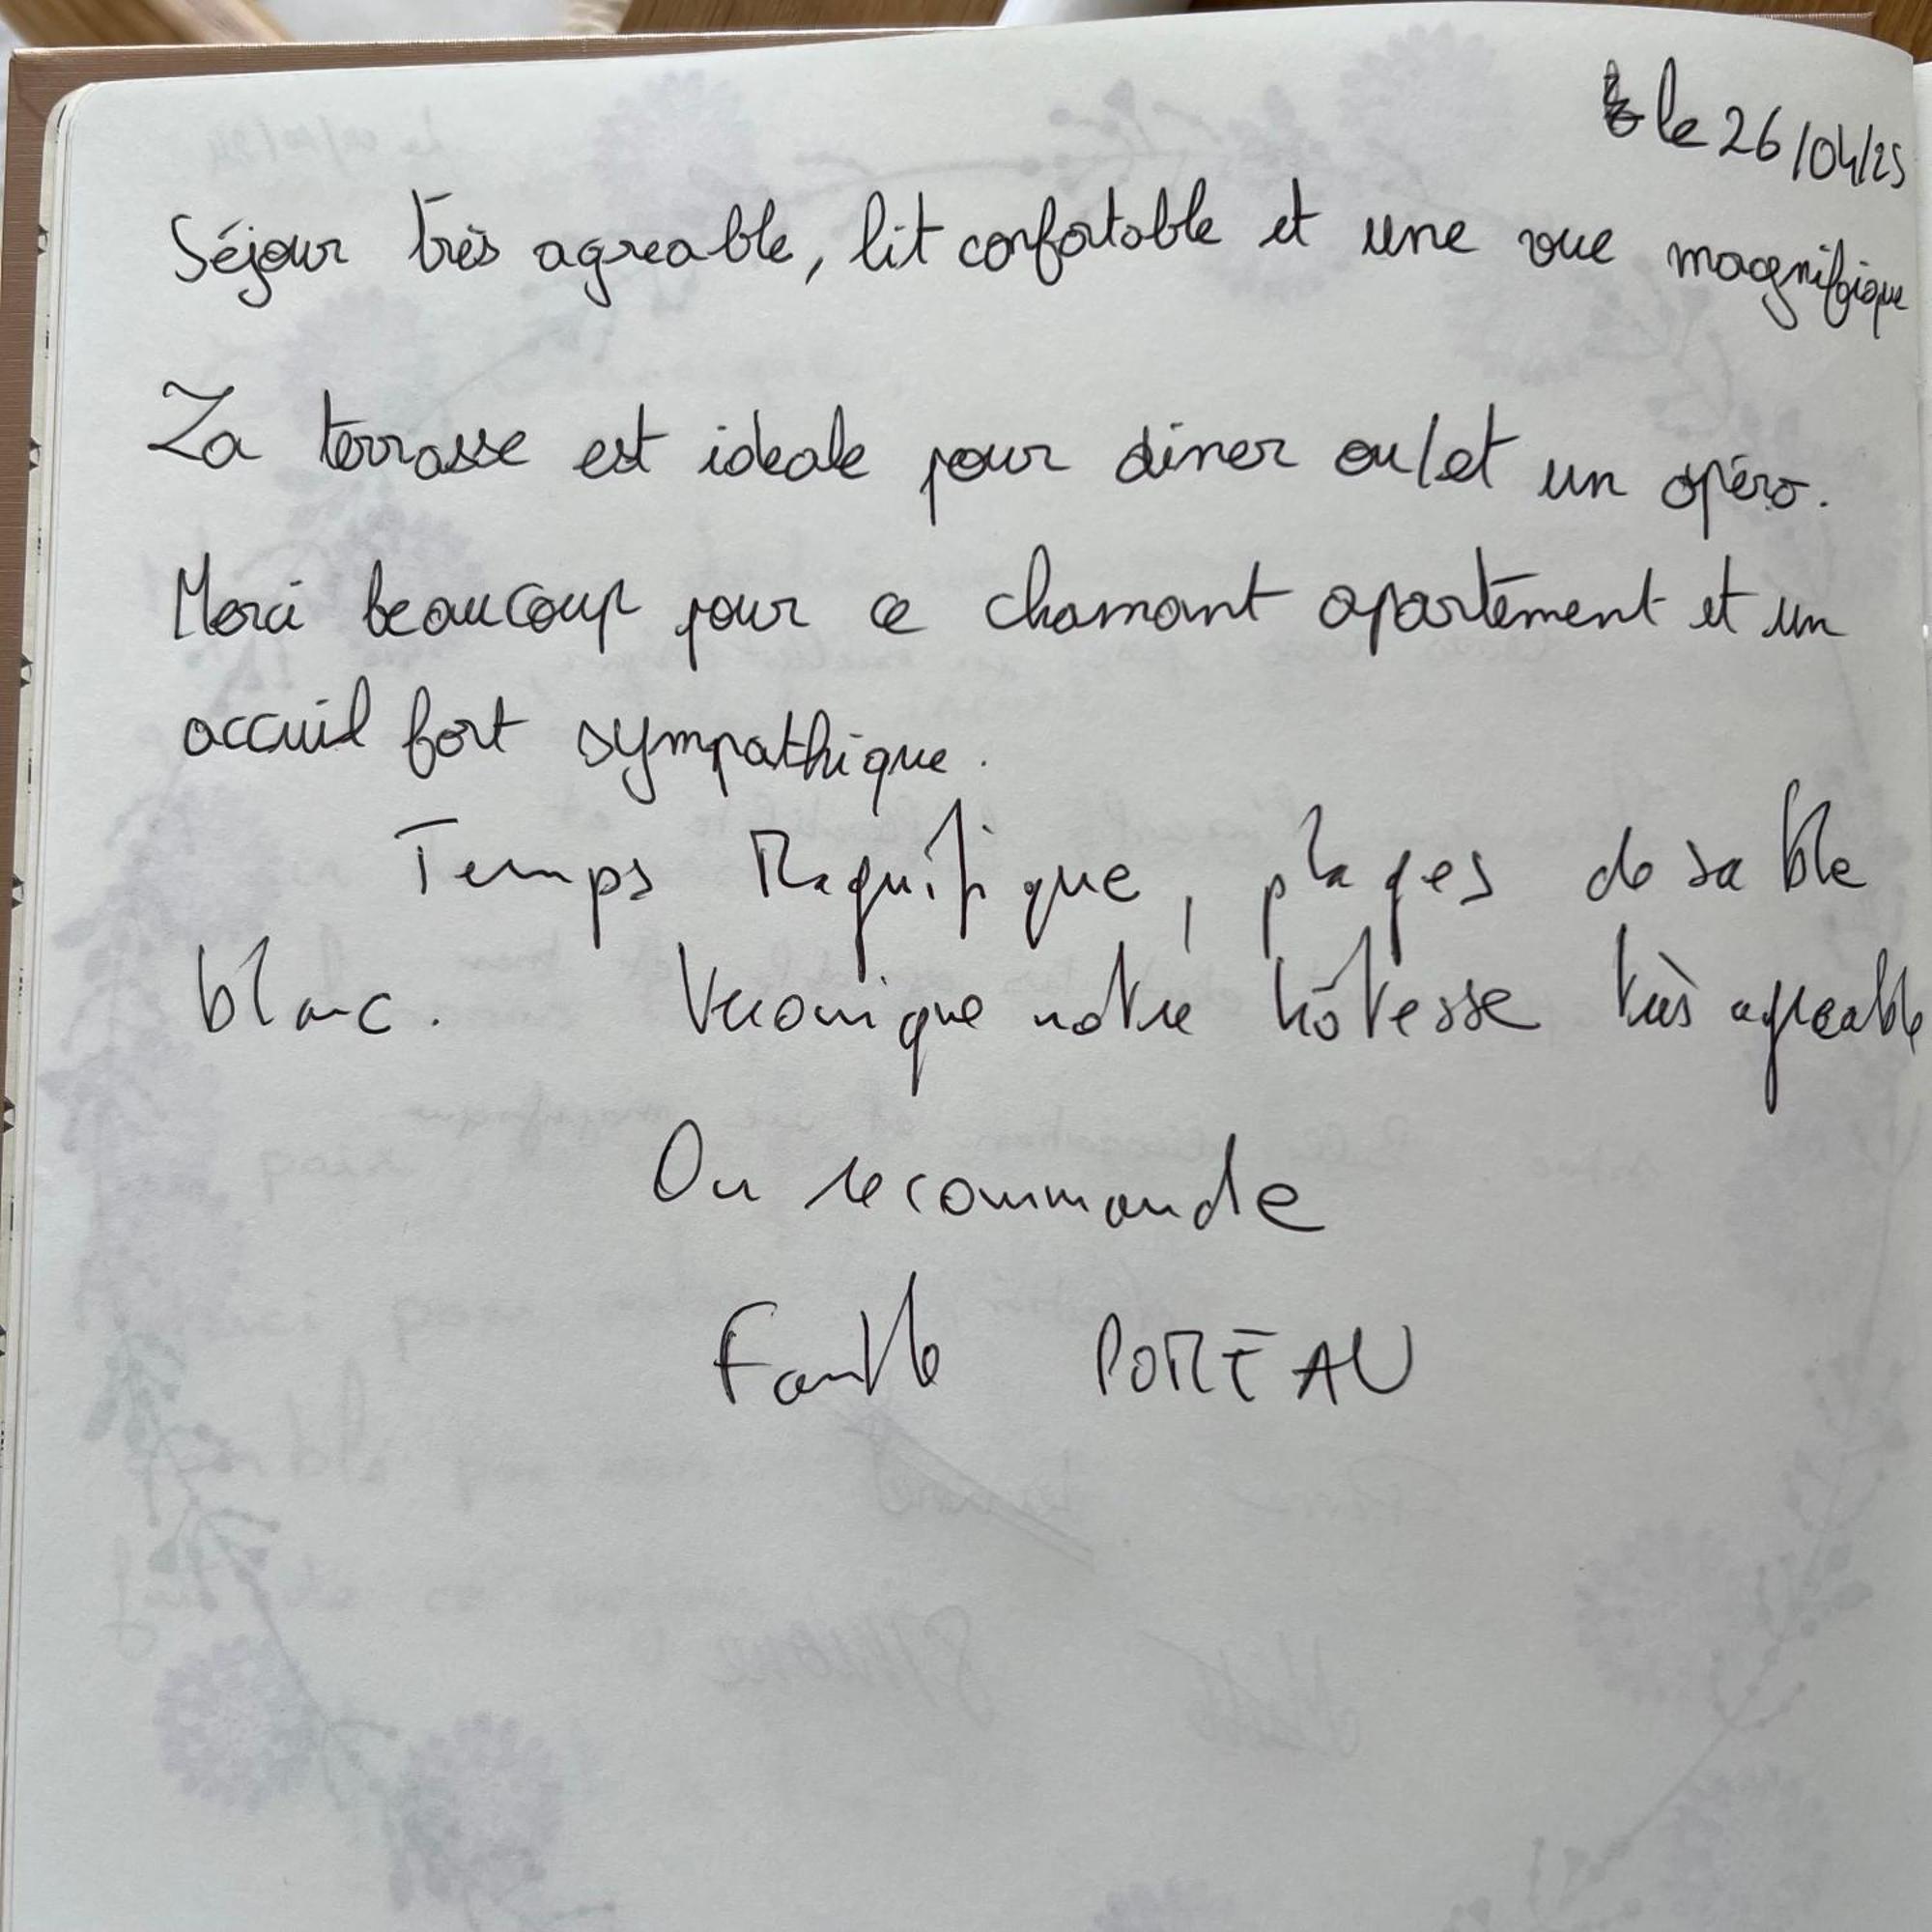 le 26/04/25
Séjour très agreable, lit confortable et une vue magnifique
La terrasse est ideale pour diner ou/et un apéro.
Merci beaucoup pour ce chamant apartement et un
accuil fort sympathique.
Temps Magnifique, plages de sable
blanc. Veronique notre hôtesse très agreable
On recommande
Famille